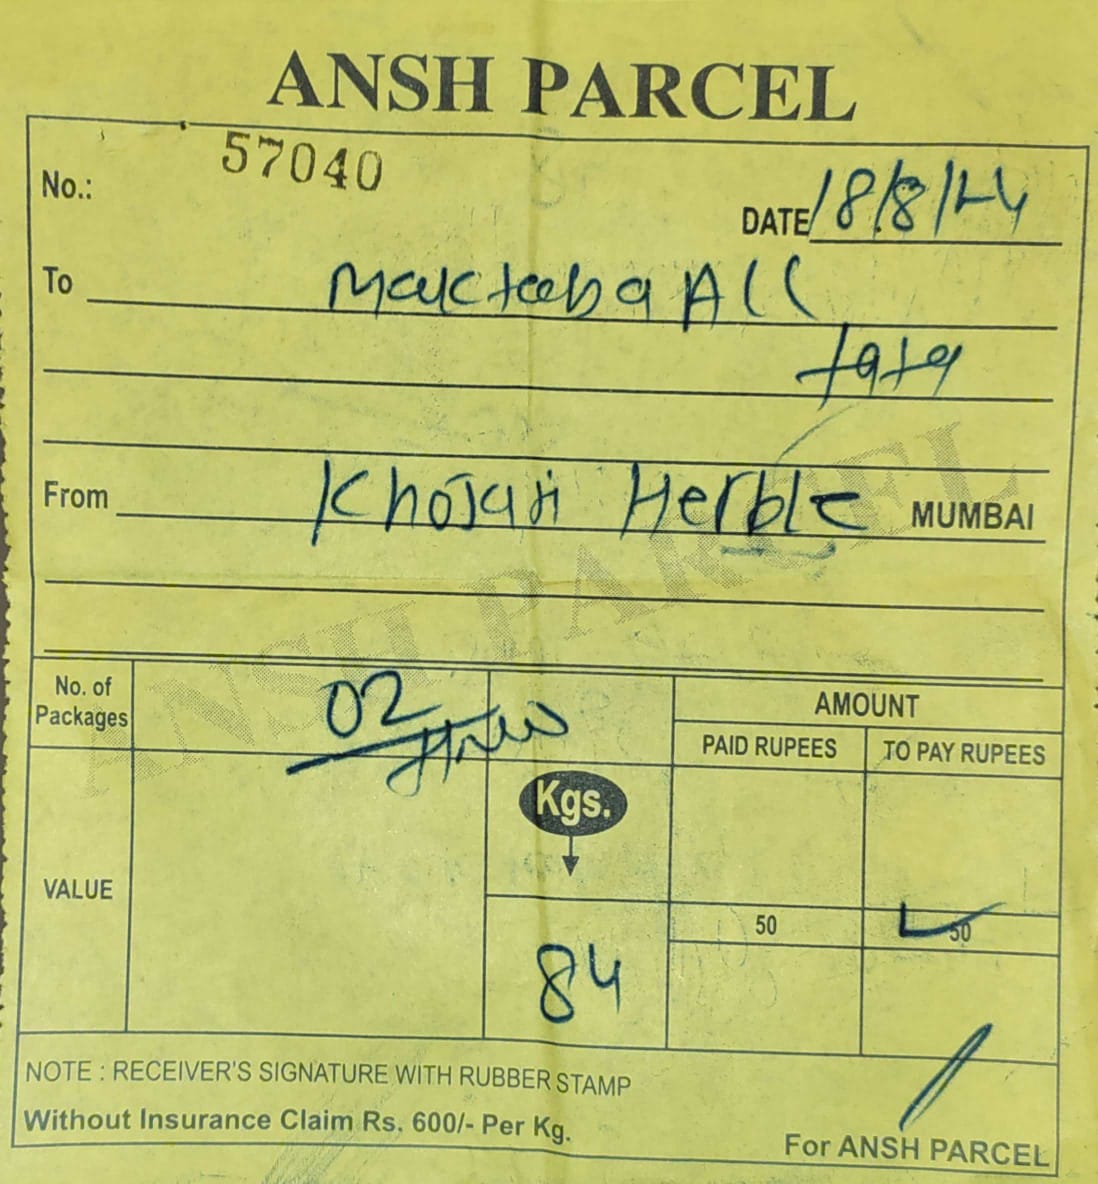 ANSH PARCEL
No.: 57040
DATE 18/8/24
To Maktaba All
tata
From Khojati Herble MUMBAI
ANSH PARCEL
No. of Packages 02
AMOUNT
PAID RUPEES TO PAY RUPEES
Kgs.
VALUE
50 50
84
NOTE : RECEIVER'S SIGNATURE WITH RUBBER STAMP
Without Insurance Claim Rs. 600/- Per Kg.
For ANSH PARCEL